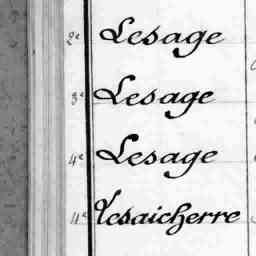 2e Lesage
3e Lesage
4e Lesage
4e Lesaicherre